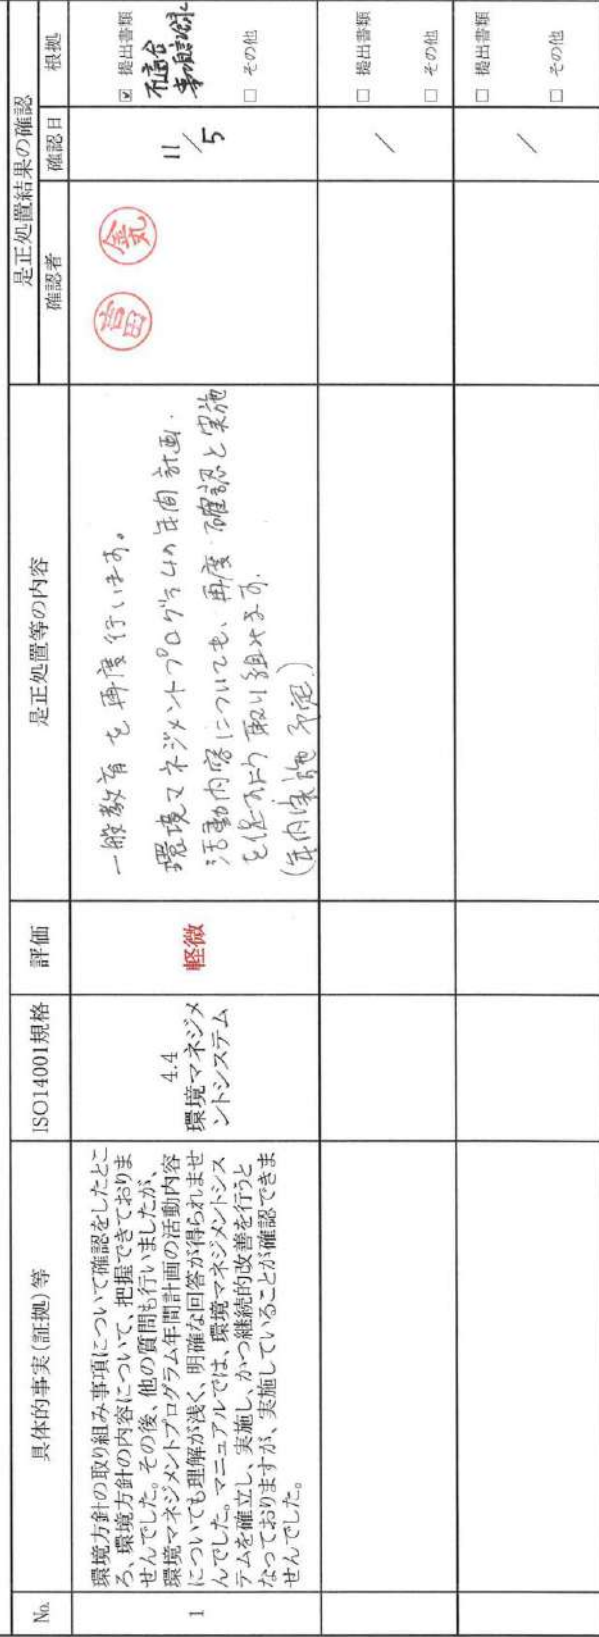 No.
具体的事実(証拠)等
ISO14001規格
評価
是正処置等の内容
是正処置結果の確認
確認者
確認日
根拠
1
環境方針の取り組み事項について確認をしたとこ
ろ、環境方針の内容について、把握できておりま
せんでした。その後、他の質問も行いましたが、
環境マネジメントプログラム年間計画の活動内容
についても理解が浅く、明確な回答が得られませ
んでした。マニュアルでは、環境マネジメントシス
テムを確立し、実施し、かつ継続的改善を行うと
なっておりますが、実施していることが確認できま
せんでした。
4.4
環境マネジメ
ントシステム
軽微
一般教育を再度行います。
環境マネジメントプログラムの年間計画・
活動内容についても、再度確認と実施
を促すよう取り組みます。
(年内実施予定)
吉田
11/5
☑ 提出書類
不適合
事項記録
□ その他
/
□ 提出書類
□ その他
/
□ 提出書類
□ その他